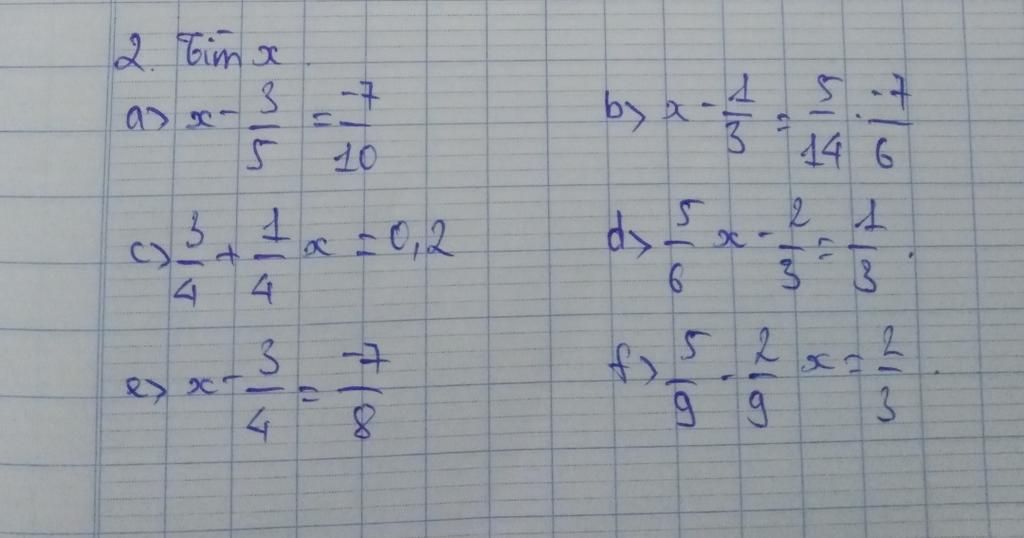 2. Tìm x.
a) x - 3/5 = -7/10 b) x - 1/3 = 5/14 . -7/6
c) 3/4 + 1/4 x = 0,2 d) 5/6 x - 2/3 = 1/3.
e) x - 3/4 = -7/8 f) 5/9 - 2/9 x = 2/3.